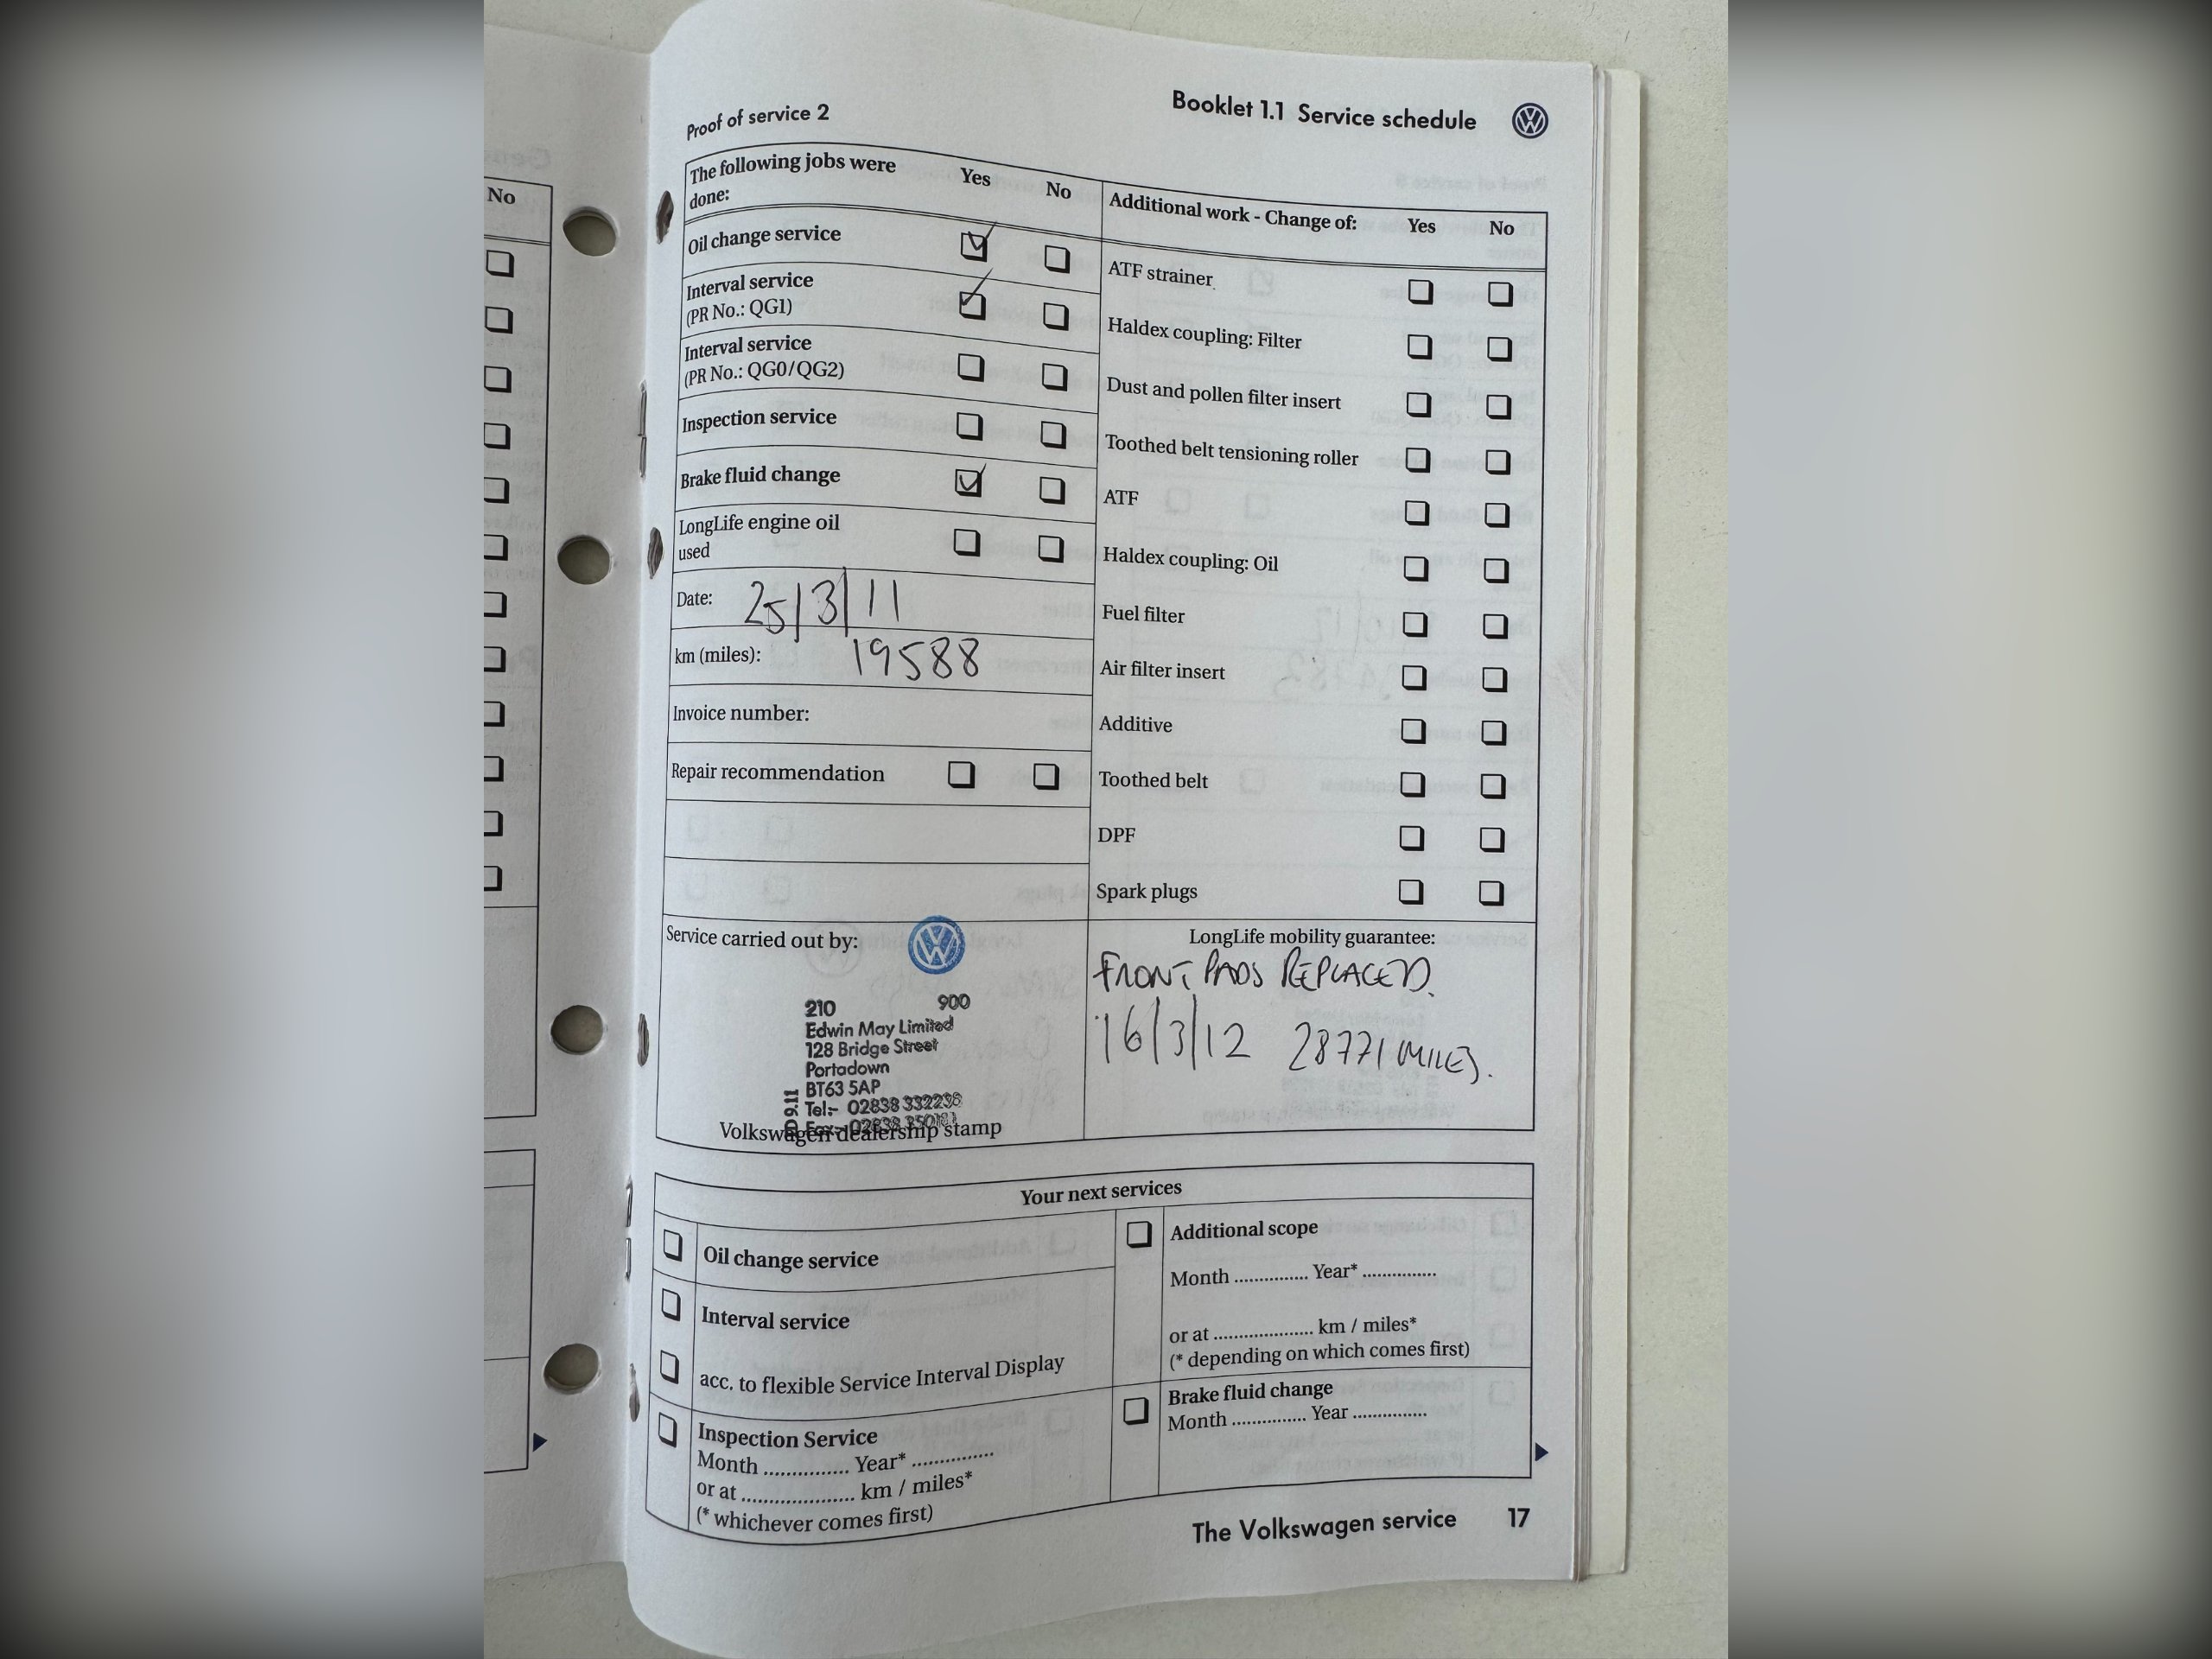 No
Proof of service 2
Booklet 1.1 Service schedule
The following jobs were done:
Yes
No
Oil change service
Interval service
(PR No.: QG1)
Interval service
(PR No.: QG0/QG2)
Inspection service
Brake fluid change
LongLife engine oil
used
Date: 25/3/11
km (miles): 19588
Invoice number:
Repair recommendation
Additional work - Change of:
Yes
No
ATF strainer
Haldex coupling: Filter
Dust and pollen filter insert
Toothed belt tensioning roller
ATF
Haldex coupling: Oil
Fuel filter
Air filter insert
Additive
Toothed belt
DPF
Spark plugs
Service carried out by:
210 900
Edwin May Limited
128 Bridge Street
Portadown
BT63 5AP
Tel:- 02838 332238
Fax:-
Volkswagen dealership stamp
LongLife mobility guarantee:
FRONT PADS REPLACED.
16/3/12 28771 MILES.
Your next services
Oil change service
Interval service
acc. to flexible Service Interval Display
Inspection Service
Month ............... Year* ...............
or at .................... km / miles*
(* whichever comes first)
Additional scope
Month .............. Year* ..............
or at ................... km / miles*
(* depending on which comes first)
Brake fluid change
Month .............. Year ..............
The Volkswagen service 17